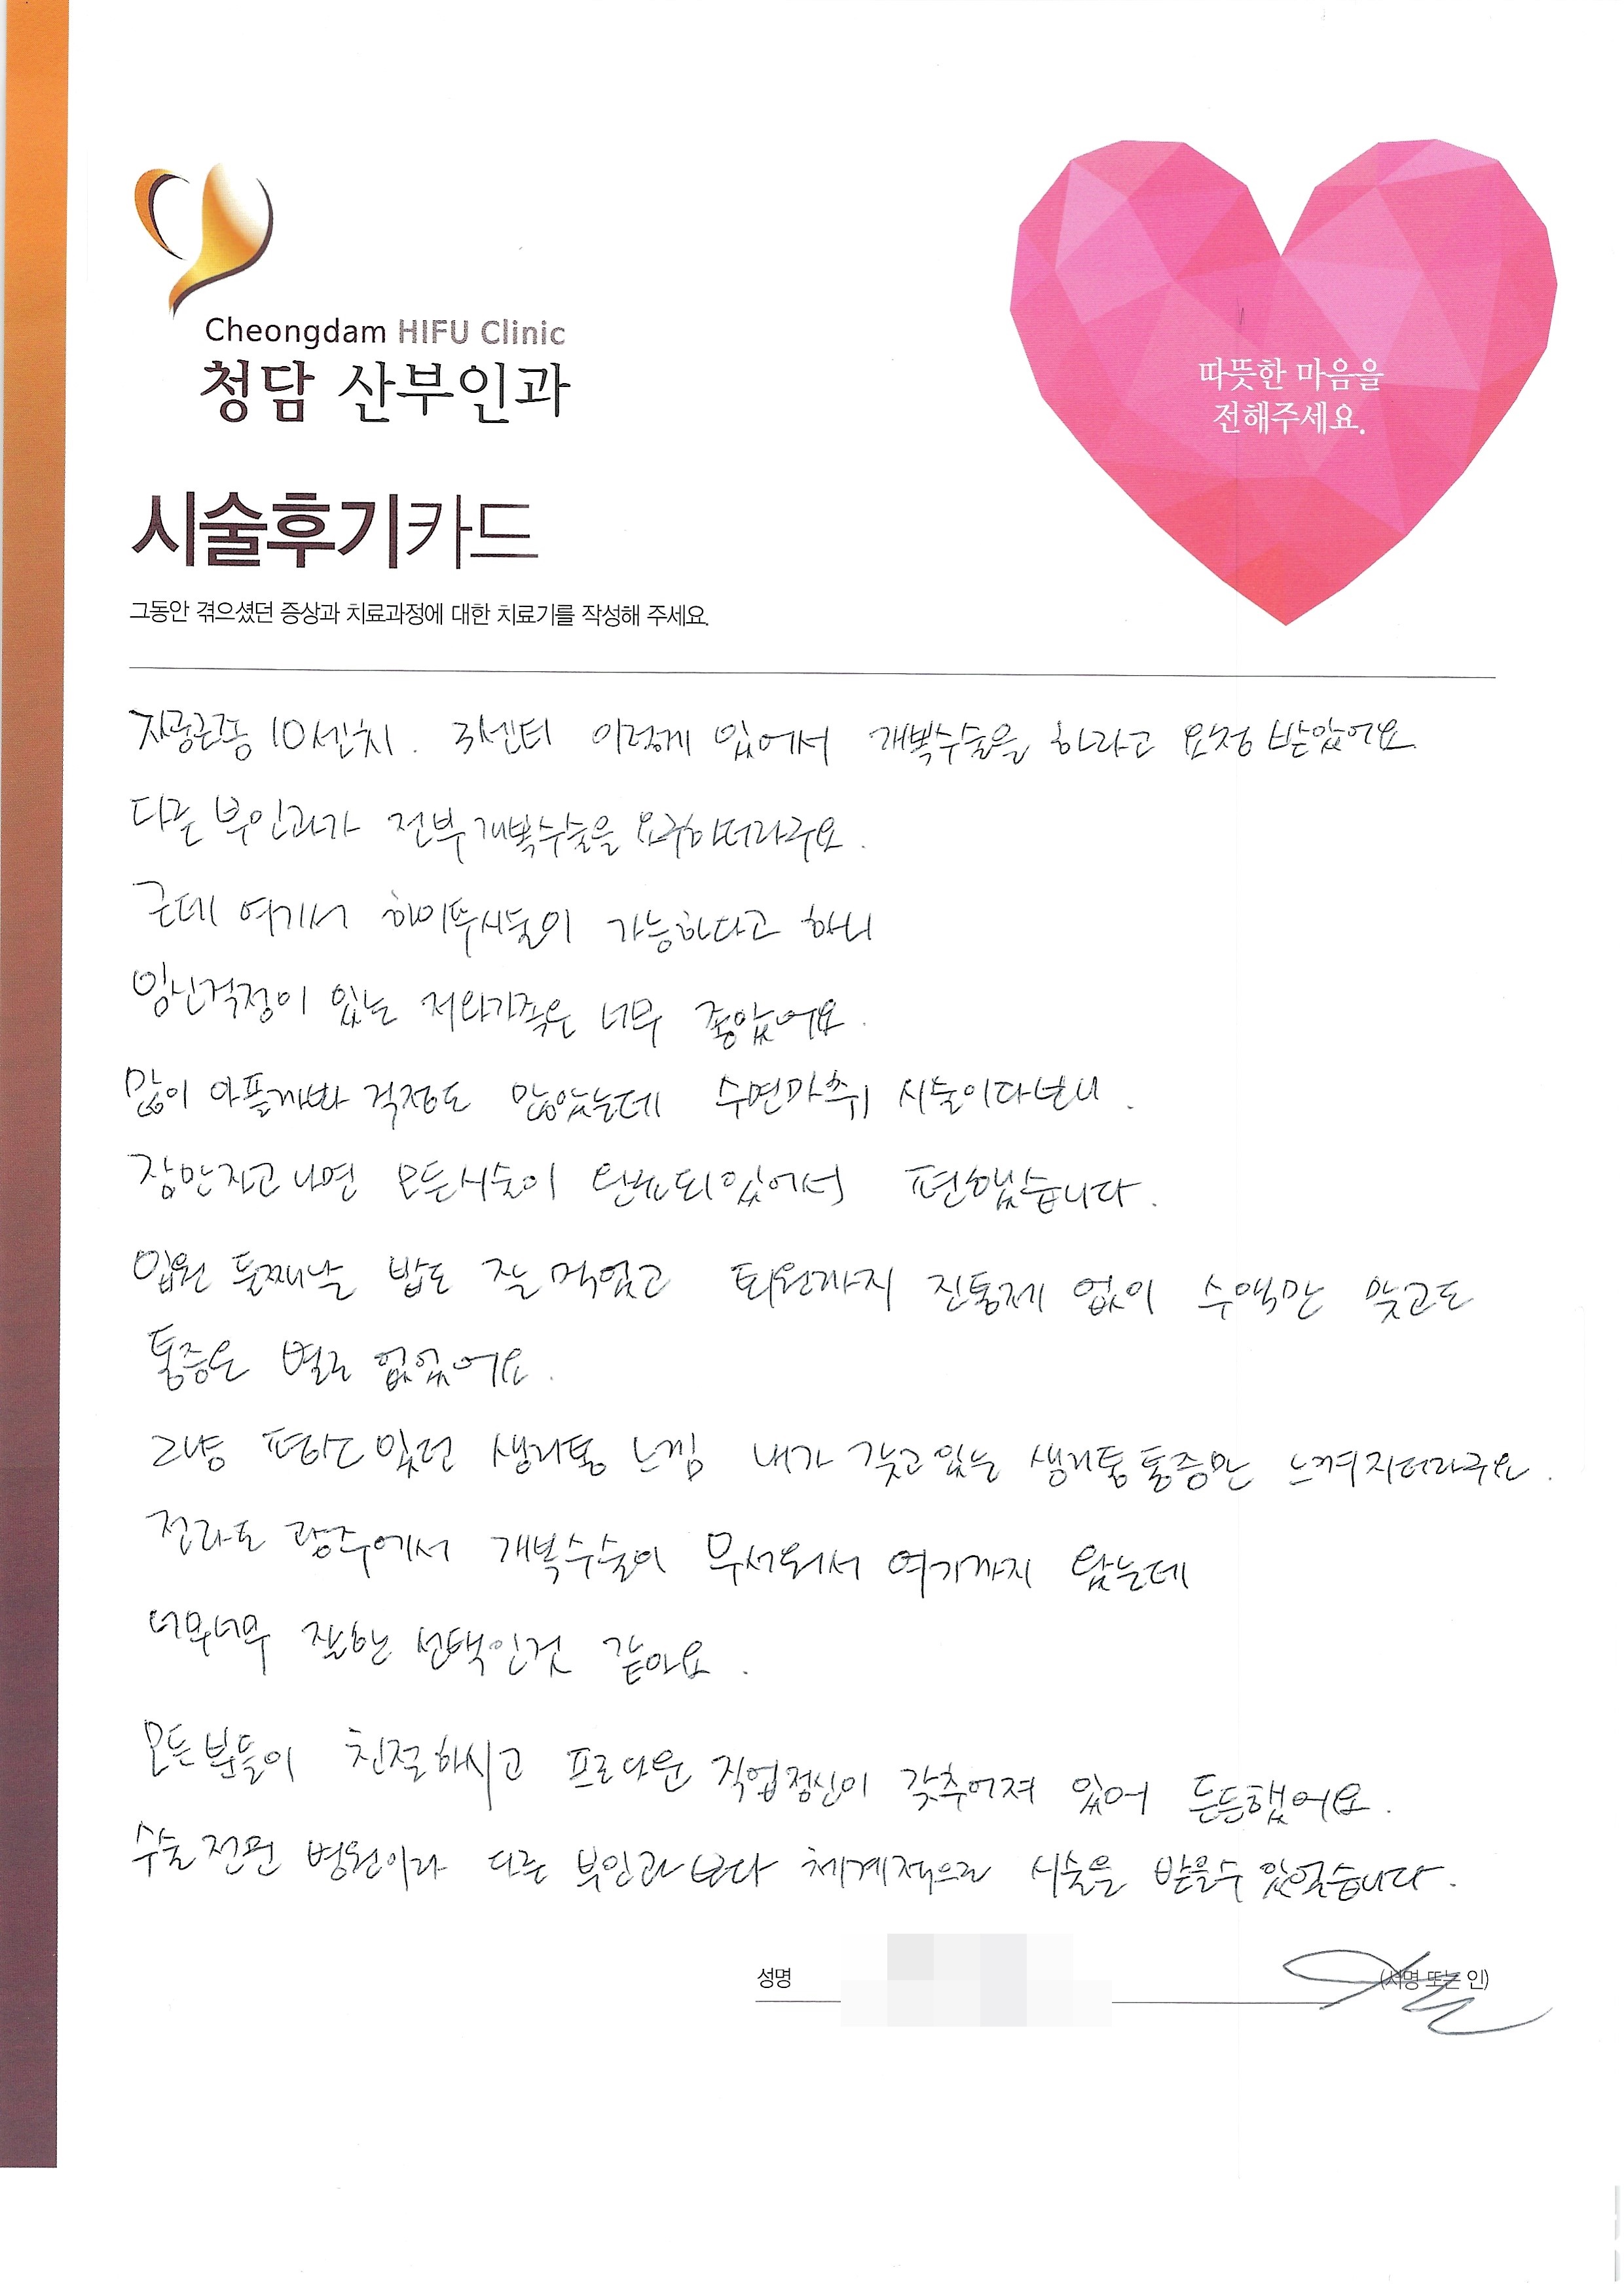 Cheongdam HIFU Clinic
청담 산부인과
따뜻한 마음을
전해주세요.
시술후기카드
그동안 겪으셨던 증상과 치료과정에 대한 치료기를 작성해 주세요.
자궁근종 10센치. 3센티 이렇게 있어서 개복수술을 하라고 요청 받았어요
다른 부인과가 전부 개복수술을 요구하더라구요.
근데 여기서 하이푸시술이 가능하다고 하니
임신걱정이 있는 저와가족은 너무 좋았어요.
많이 아플까봐 걱정도 많았는데 수면마취 시술이다보니.
잠만자고나면 모든시술이 완료되있어서 편했습니다.
입원 둘째날 밥도 잘 먹었고 퇴원까지 진통제 없이 수액만 맞고도
통증은 별로 없었어요.
그냥 평상도 있던 생리통 느낌 내가 갖고있는 생리통 통증만 느껴지더라구요.
전라도 광주에서 개복수술이 무서워서 여기까지 왔는데
너무너무 잘한 선택인것 같아요.
모든분들이 친절하시고 프로다운 직업정신이 갖추어져 있어 든든했어요.
수술 전문 병원이라 다른 부인과보다 체계적으로 시술을 받을수 있었습니다.
성명
(서명 또는 인)